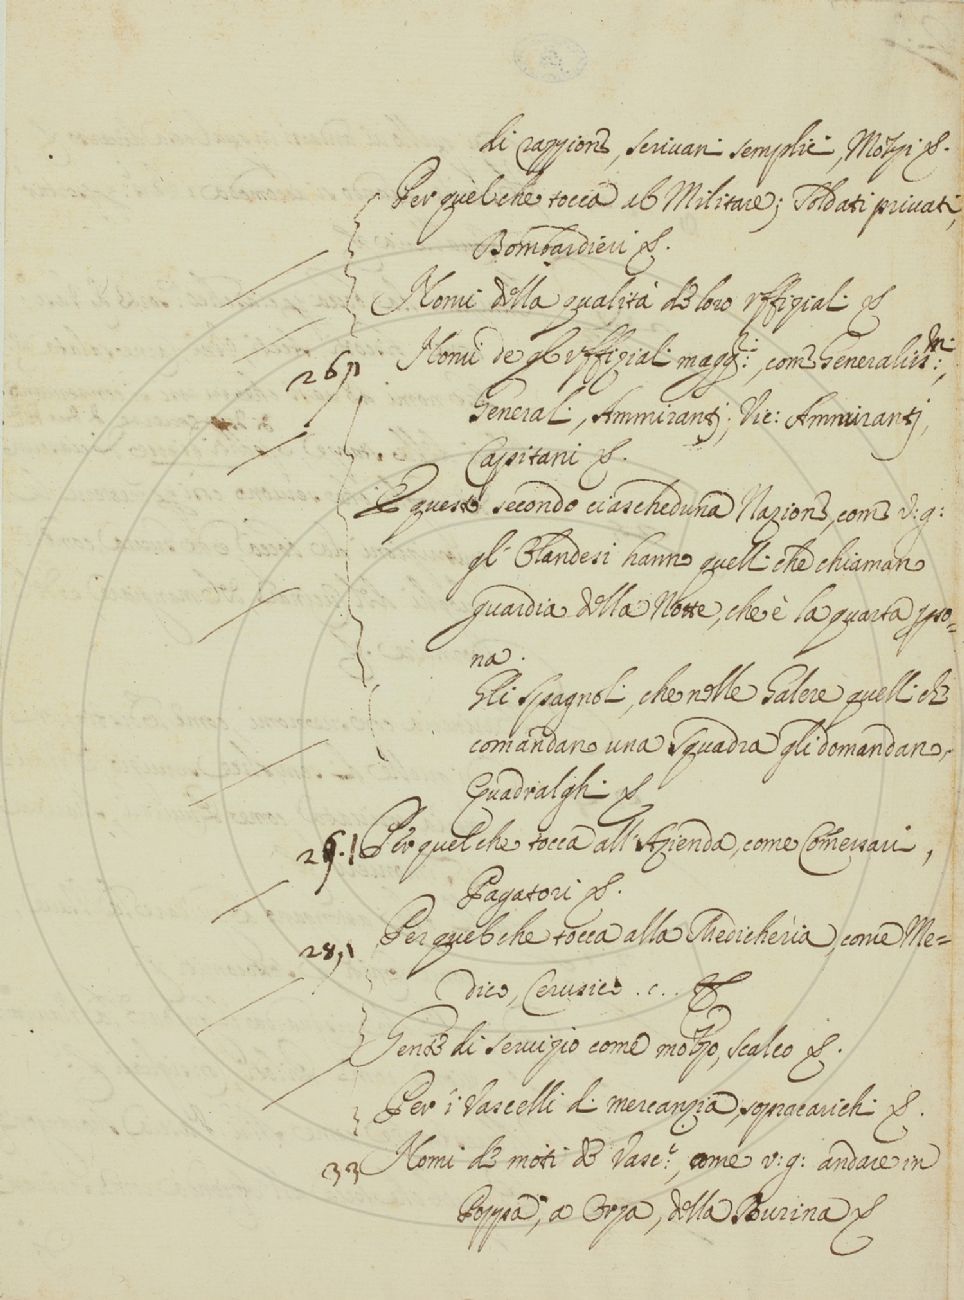 di raggione, scrivani semplici, Mozzi &.
Per quel che tocca al Militare; Soldati privati,
Bombardieri &.
Nomi della qualità de loro uffizial: &
26 Nomi de gl'uffizial: magg:ri, come Generaliss:mi,
General:, Ammirantj, Vic: Ammirantj,
Capitani &.
E questo secondo ciascheduna Nazione, come v: g:
gl'Olandesi hanno quelli che chiamano
guardia della Notte, che è la quarta perso=
na.
Gli Spagnoli, che nelle Galere quelli che
comandano una Squadra gli domandano,
Quadralghi &
Per quel che tocca all'Azienda, come Comessari,
Pagatori &.
28, Per quel che tocca alla Medicheria, come Me=
dico, Cerusico .c.. &
Gente di servizio come mozzo, scalco &.
Per i Vascelli di mercanzia, sopracarichi &.
33 Nomi de moti de Vasc:li, come v: g: andare in
Poppa, a Orza, della Bourina &